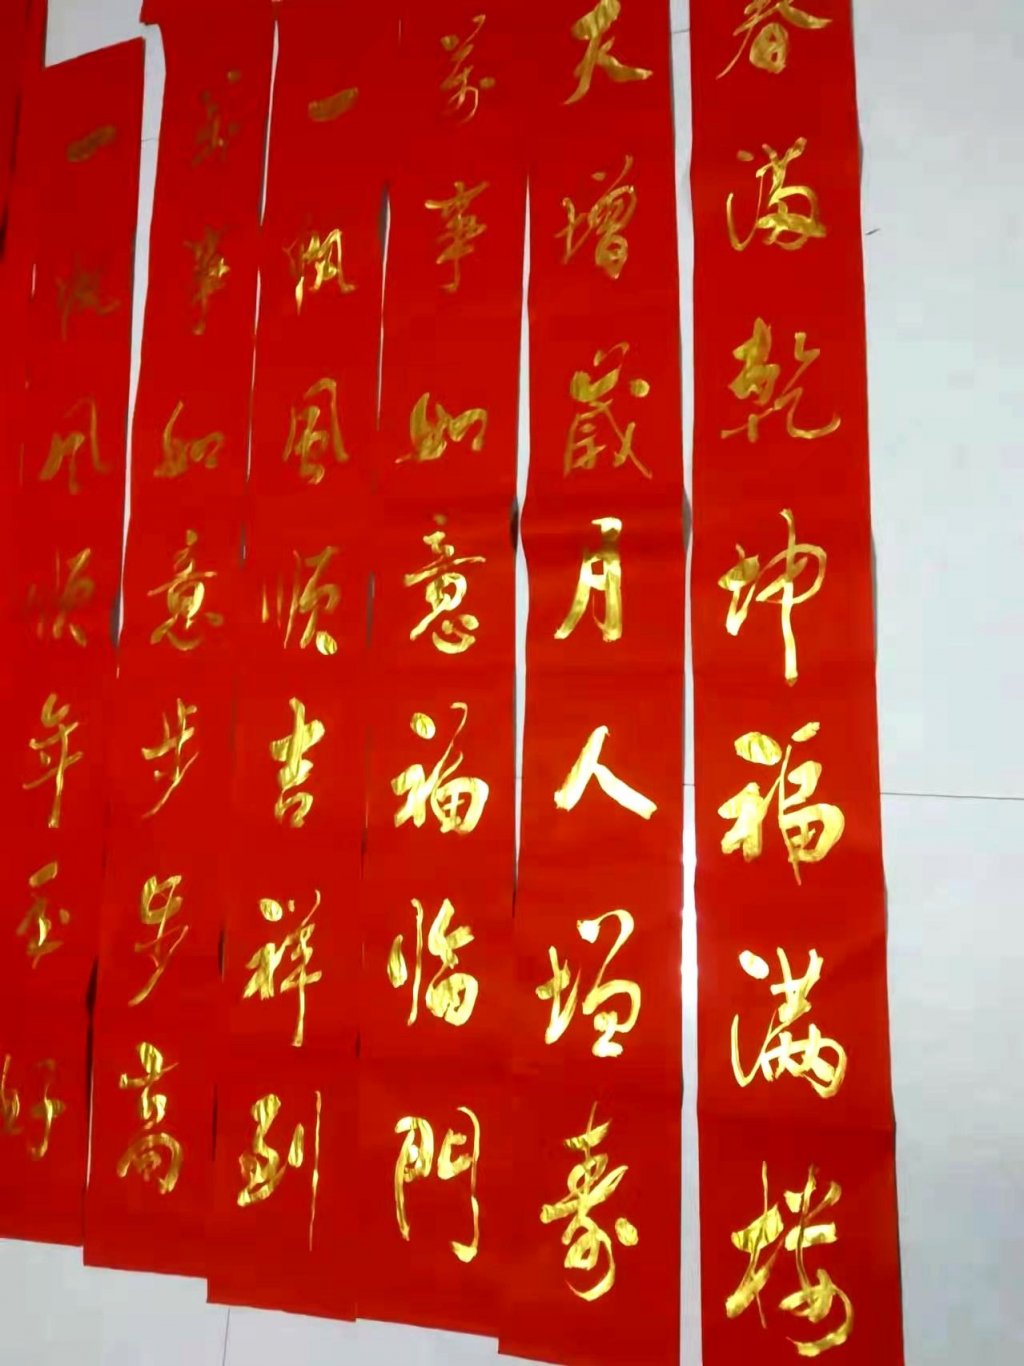 春满乾坤福满楼
天增歲月人增寿
萬事如意福临門
一帆風顺吉祥到
萬事如意步步高
一帆风顺年年好